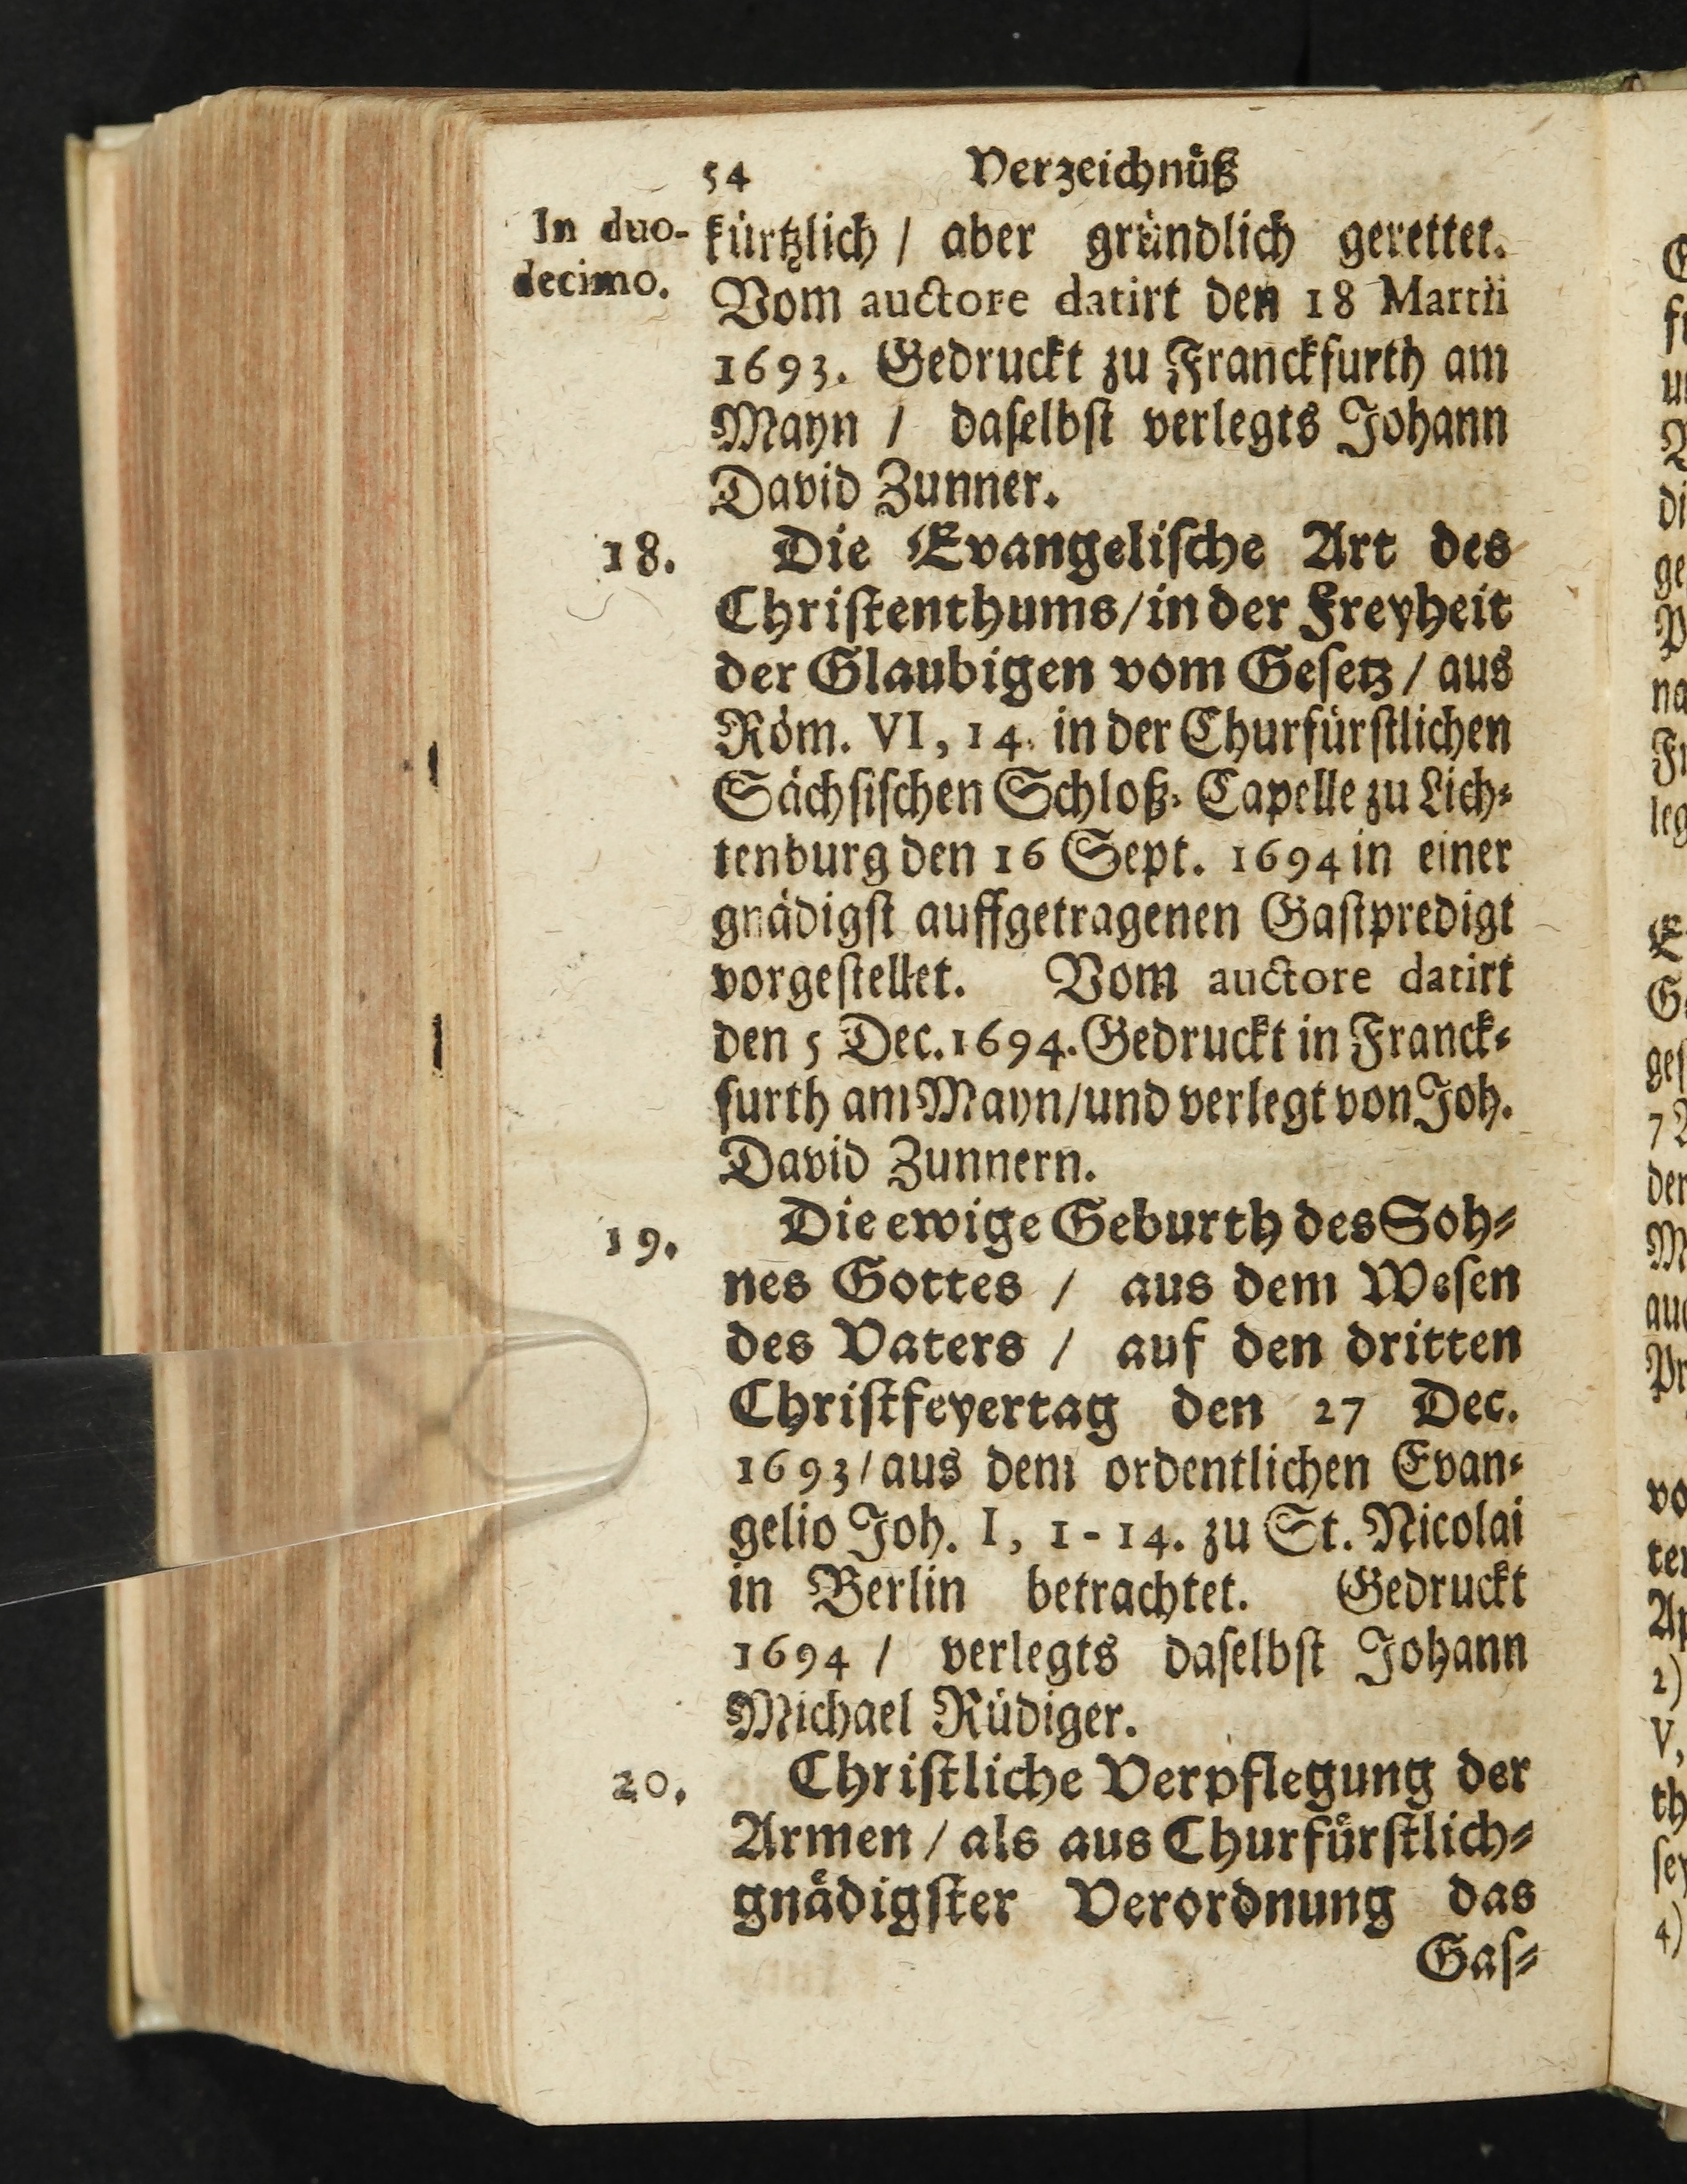 54 Verzeichnüß
In duo-
decimo.
kürtzlich / aber gründlich gerettet.
Vom auctore datirt den 18 Martii
1693. Gedruckt zu Franckfurth am
Mayn / daſelbſt verlegts Johann
David Zunner.
18. Die Evangeliſche Art des
Chriſtenthums/in der Freyheit
der Glaubigen vom Geſetz / aus
Röm. VI, 14. in der Churfürſtlichen
Sächſiſchen Schloß⸗Capelle zu Lich⸗
tenburg den 16 Sept. 1694 in einer
gnädigſt auffgetragenen Gaſtpredigt
vorgeſtellet. Vom auctore datirt
den 5 Dec. 1694. Gedruckt in Franck⸗
furth am Mayn/und verlegt von Joh.
David Zunnern.
19. Die ewige Geburth des Soh⸗
nes Gottes / aus dem Weſen
des Vaters / auf den dritten
Chriſtfeyertag den 27 Dec.
1693/aus dem ordentlichen Evan⸗
gelio Joh. I, 1-14. zu St. Nicolai
in Berlin betrachtet. Gedruckt
1694 / verlegts daſelbſt Johann
Michael Rüdiger.
20. Chriſtliche Verpflegung der
Armen / als aus Churfürſtlich⸗
gnädigſter Verordnung das
Gaſ⸗